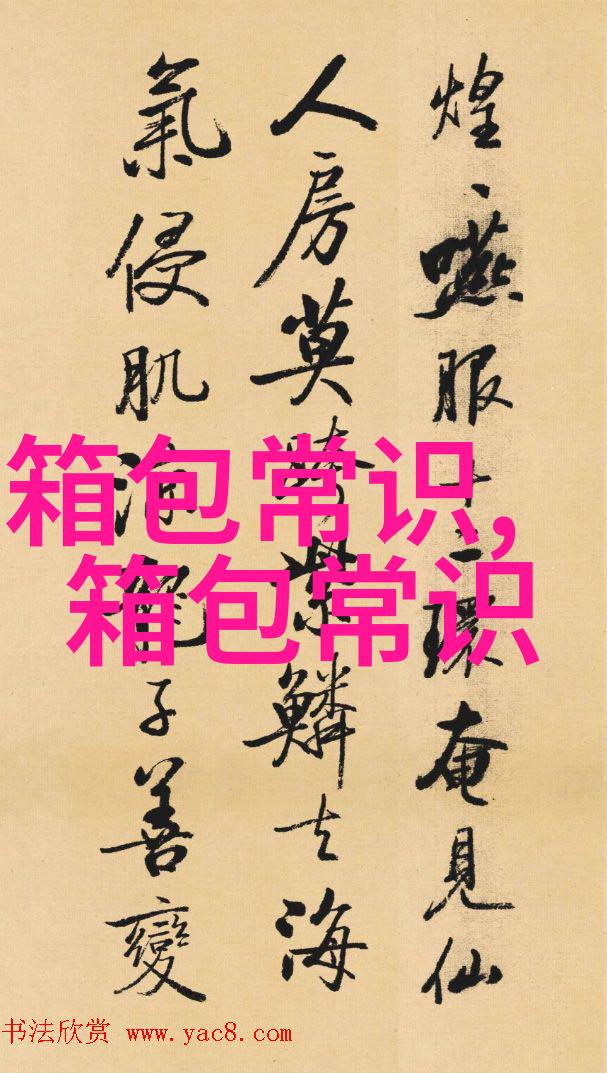 煌、嚥服十二環奄見仙
人房莫跨紫鱗去海
氣侵肌涼龍子善變
箱包常识,
箱包常识
书法欣赏 www.yac8.com